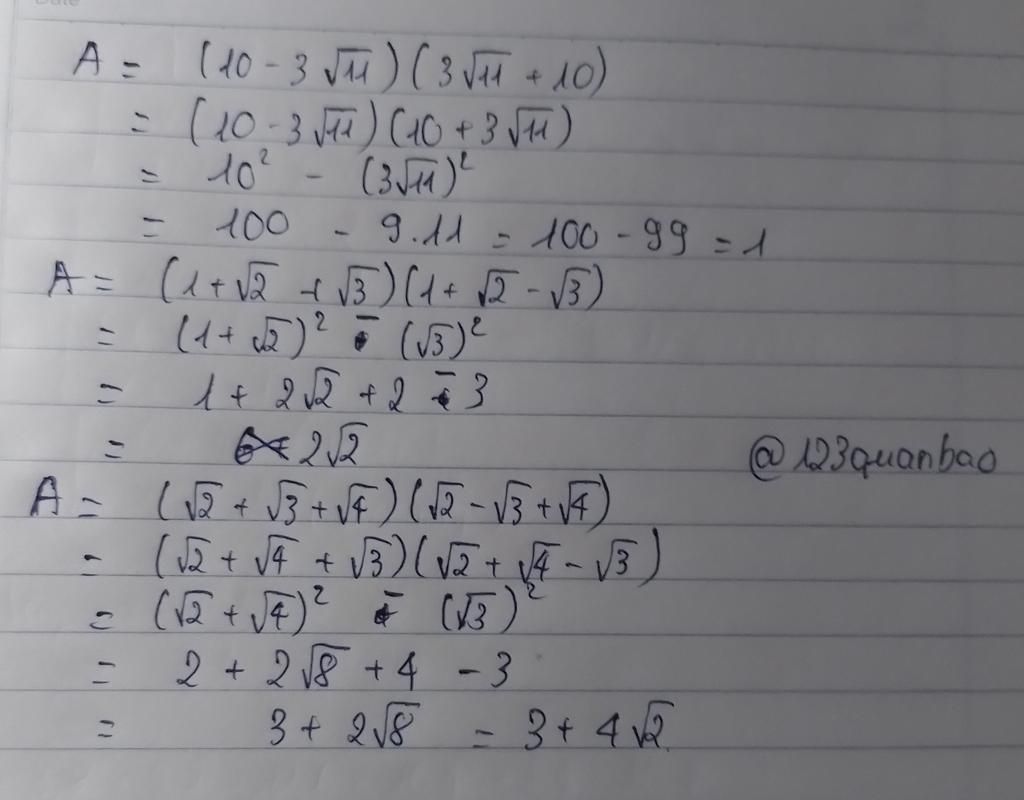 Date
A = (10 - 3√11)(3√11 + 10)
= (10 - 3√11)(10 + 3√11)
= 10² - (3√11)²
= 100 - 9.11 = 100 - 99 = 1
A = (1 + √2 + √3)(1 + √2 - √3)
= (1 + √2)² - (√3)²
= 1 + 2√2 + 2 - 3
= 2√2
@123quanbao
A = (√2 + √3 + √4)(√2 - √3 + √4)
= (√2 + √4 + √3)(√2 + √4 - √3)
= (√2 + √4)² - (√3)²
= 2 + 2√8 + 4 - 3
= 3 + 2√8 = 3 + 4√2